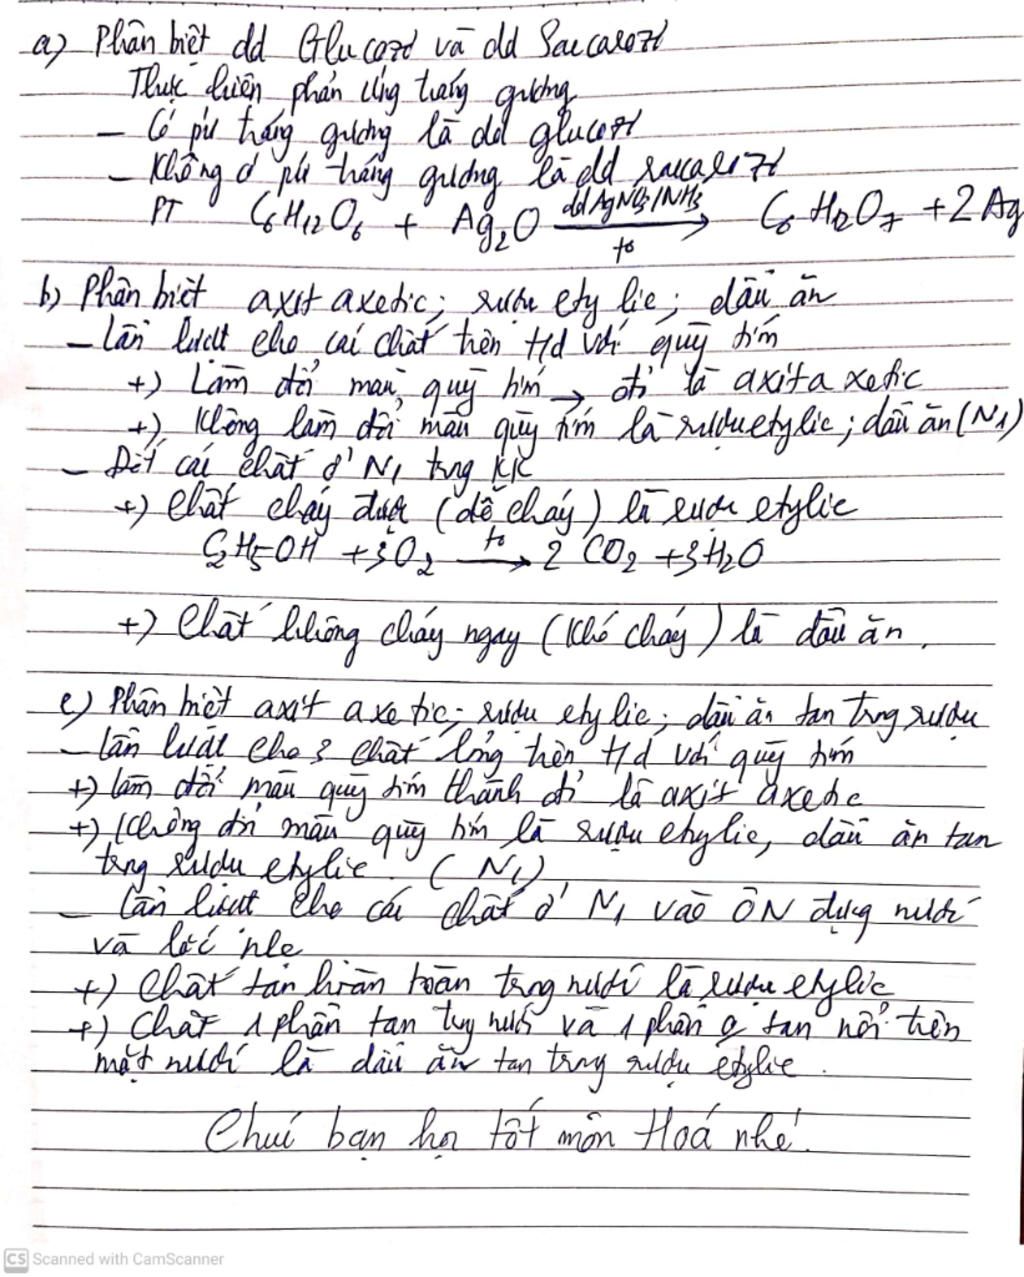 a) Phân biệt dd Glucozơ và dd Saccarozơ
Thực hiện phản ứng tráng gương
- Có pư tráng gương là dd glucozơ
- Không có pư tráng gương là dd saccarozơ
PT C6H12O6 + Ag2O dd AgNO3/NH3 → to C6H12O7 + 2Ag
b) Phân biệt axit axetic; rượu etylic; dầu ăn
- Lần lượt cho các chất trên t/d với quỳ tím
+) Làm đổi màu quỳ tím → đỏ là axit axetic
+) Không làm đổi màu quỳ tím là rượu etylic; dầu ăn (N1)
- Đốt các chất ở N1 trong KK
+) Chất cháy được (dễ cháy) là rượu etylic
C2H5OH + 3O2 to → 2CO2 + 3H2O
+) Chất không cháy ngay (khó cháy) là dầu ăn.
c) Phân biệt axit axetic; rượu etylic; dầu ăn tan trong rượu
- Lần lượt cho 3 chất lỏng trên t/d với quỳ tím
+) làm đổi màu quỳ tím thành đỏ là axit axetic
+) Không đổi màu quỳ tím là rượu etylic, dầu ăn tan
trong rượu etylic. (N1)
- Lần lượt cho các chất ở N1 vào ÔN đựng nước
và lắc nhẹ
+) Chất tan hoàn toàn trong nước là rượu etylic
+) Chất 1 phần tan trong nước và 1 phần o tan nổi trên
mặt nước là dầu ăn tan trong rượu etylic.
Chúc bạn học tốt môn Hoá nhé!
CS Scanned with CamScanner